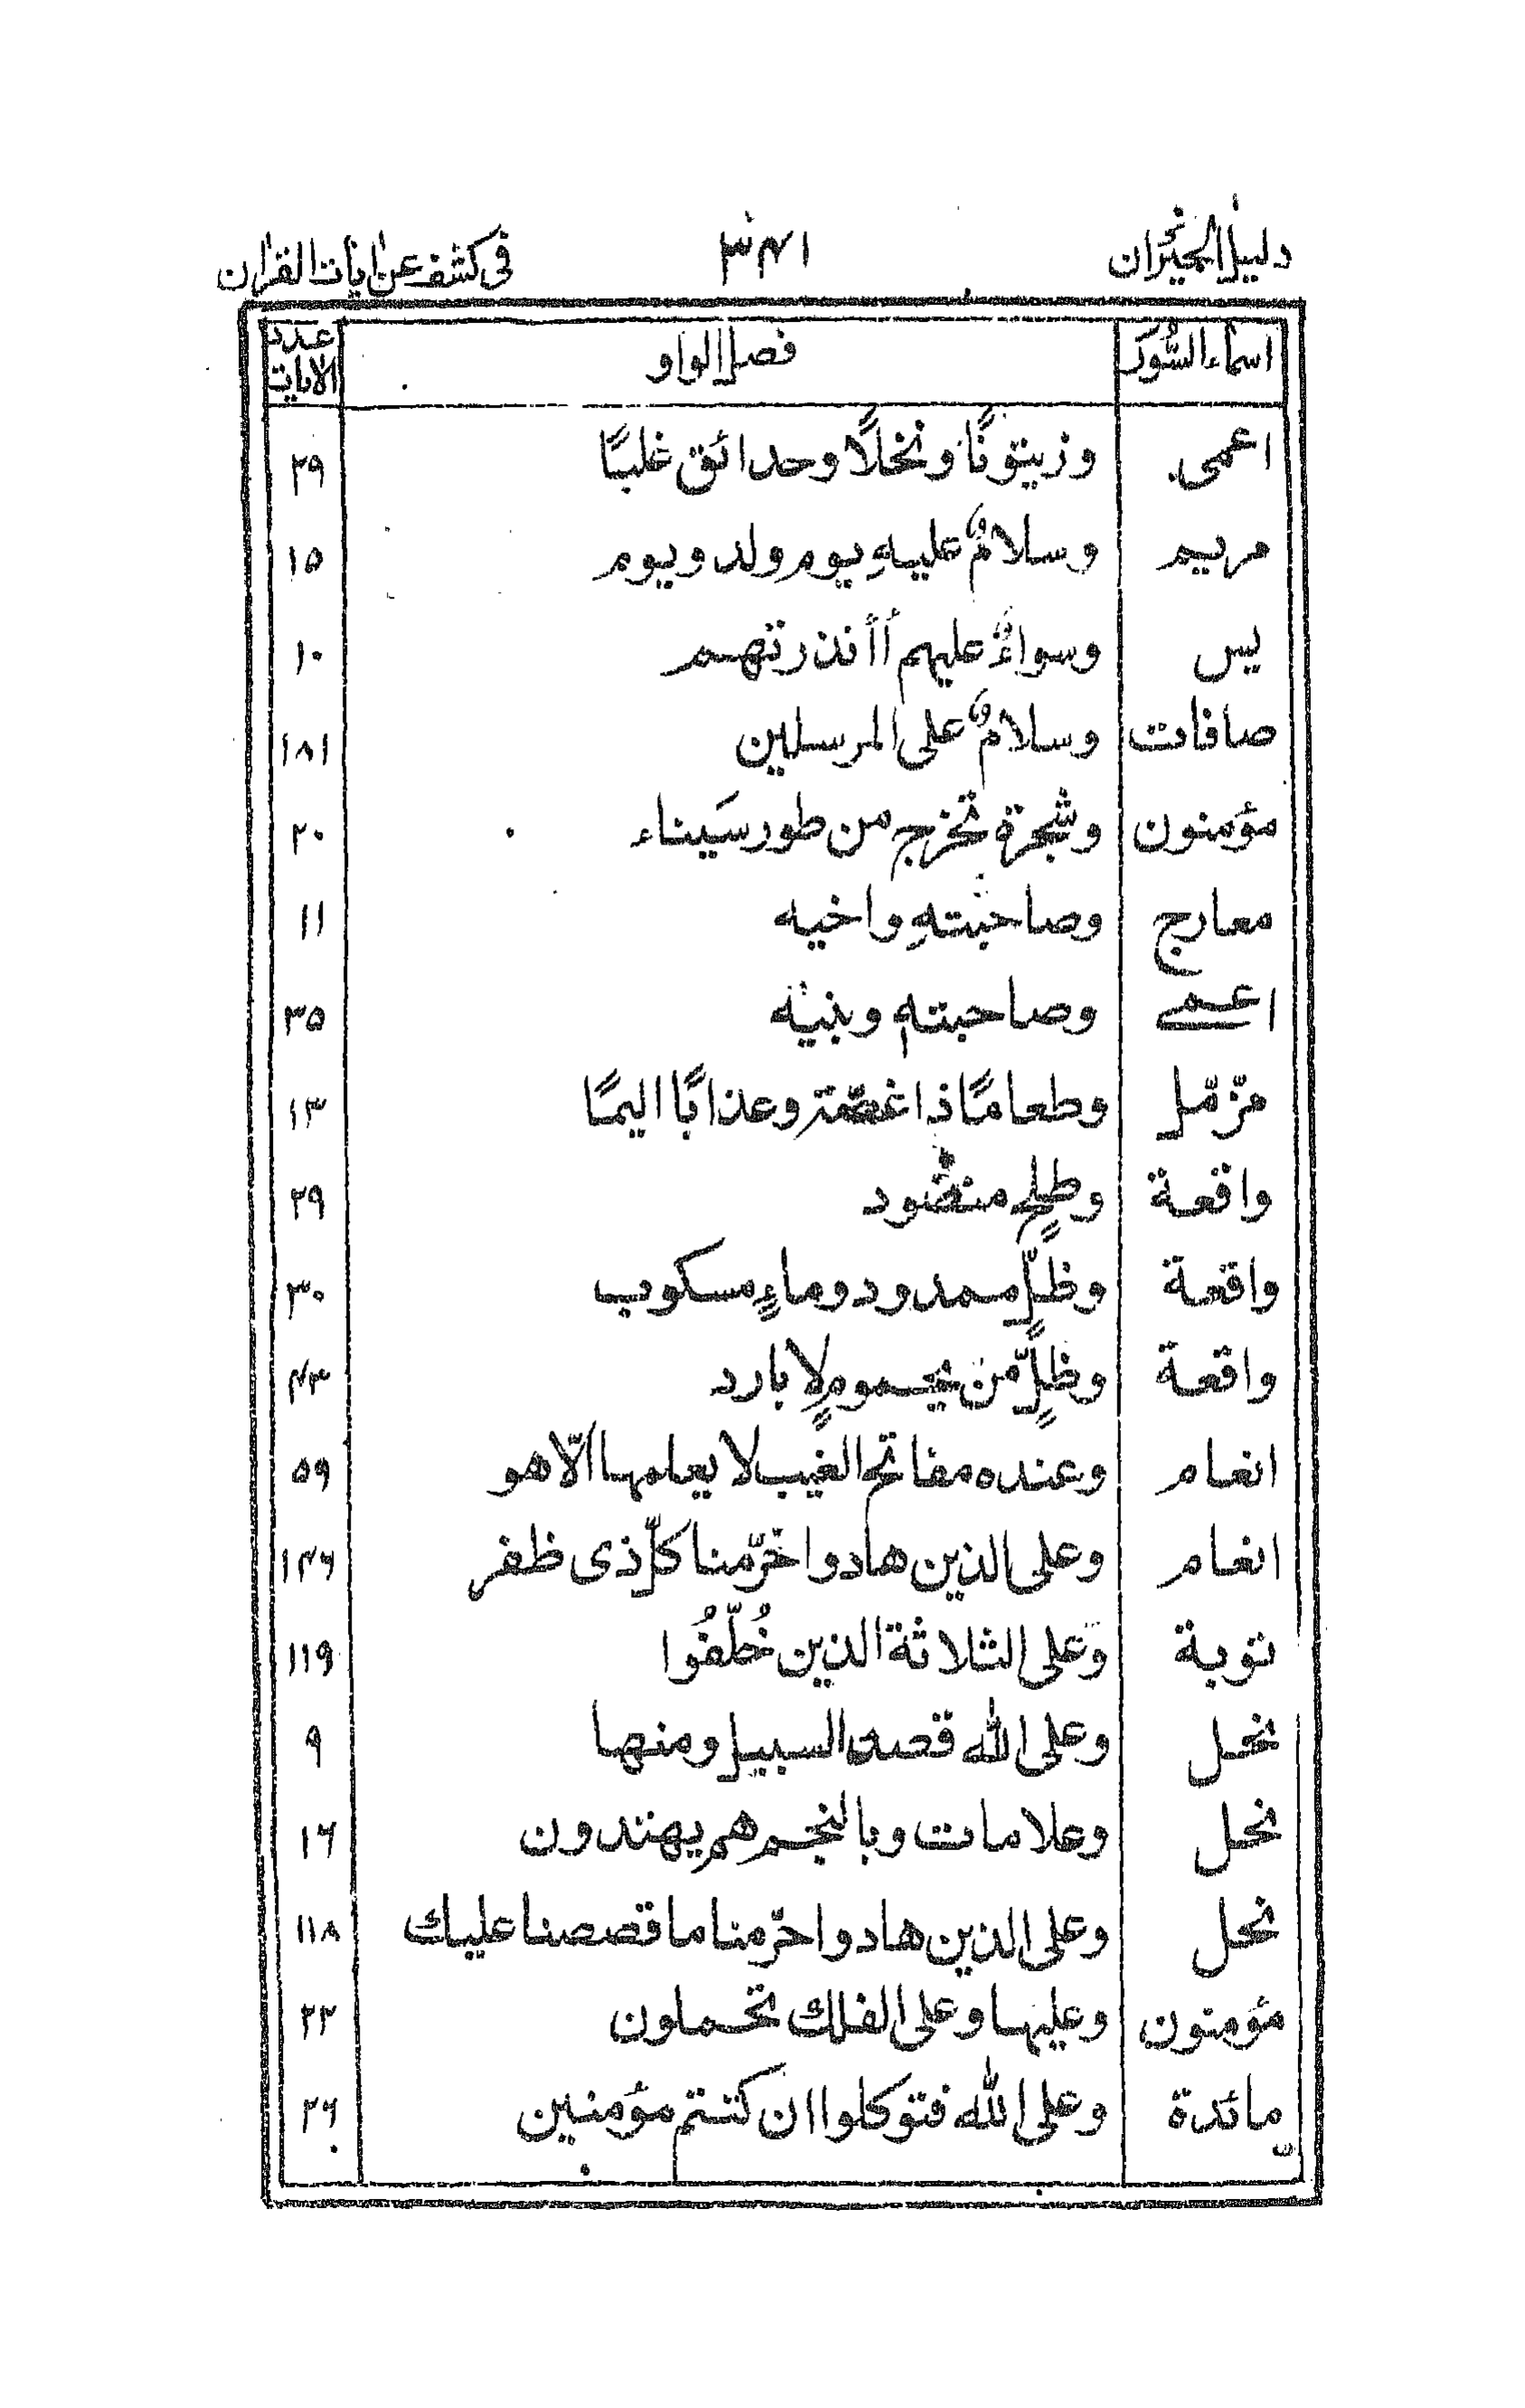 دليل الحيران ٣٤١ فى كشف عن ايات القران
اسماء السُّور فصل الواو عدد الايات
اعمى وزيتونًا ونخلًا وحدائق غلبًا ٢٩
مريم وسلامٌ عليهِ يوم ولد ويوم ١٥
يس وسواءٌ عليهم أأنذرتهم ١٠
صافات وسلامٌ على المرسلين ١٨١
مؤمنون وشجرة تخرج من طور سَيناء ٢٠
معارج وصاحبتهِ واخيه ١١
اعمے وصاحبتهٖ وبنيه ٣٥
مزّمّل وطعامًا ذا غصّة وعذابًا اليمًا ١٣
واقعة وطلحٍ منضود ٢٩
واقعة وظلٍّ ممدود وماءٍ مسكوب ٣٠
واقعة وظلٍّ مّن يحمومٍ لا بارد ٤٣
انعام وعنده مفاتح الغيب لا يعلمها الّا هو ٥٩
انعام وعلى الذين هادوا حرّمنا كلّ ذى ظفر ١٤٦
توبة وعلى الثلاثة الذين خُلّفُوا ١١٩
نحل وعلى الله قصد السبيل ومنها ٩
نحل وعلامات وبالنجم هم يهتدون ١٦
نحل وعلى الذين هادوا حرّمنا ما قصصنا عليك ١١٨
مؤمنون وعليها وعلى الفلك تحملون ٢٢
مائدة وعلى الله فتوكلوا ان كنتم مؤمنين ٢٦